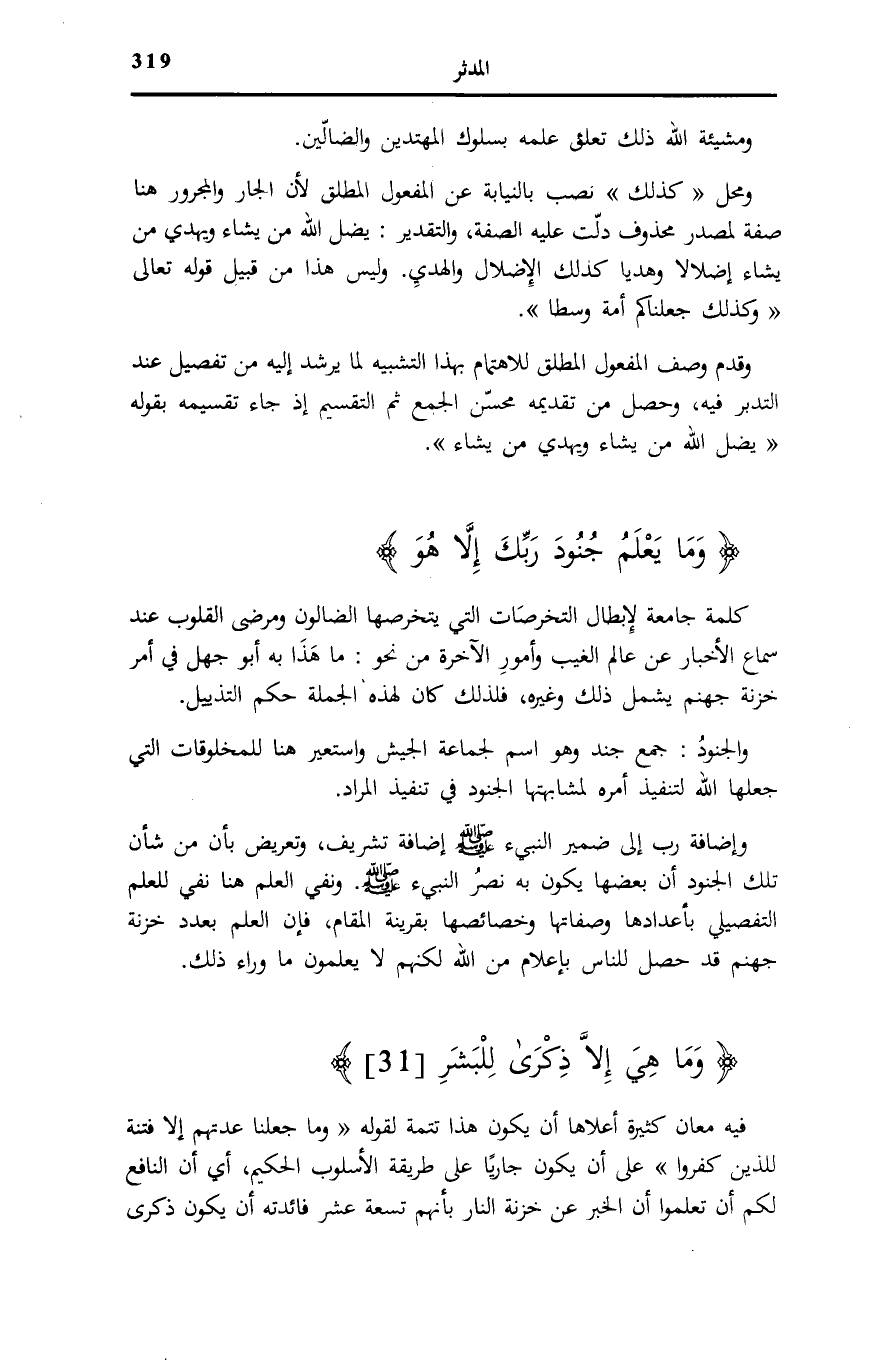 319
المدثر
ومشيئة الله ذلك تعلق علمه بسلوك المهتدين والضالّين.
ومحل « كذلك » نصب بالنيابة عن المفعول المطلق لأن الجار والمجرور هنا
صفة لمصدر محذوف دلّت عليه الصفة، والتقدير : يضل الله من يشاء ويهدي من
يشاء إضلالا وهديا كذلك الإضلال والهدي. وليس هذا من قبيل قوله تعالى
« وكذلك جعلناكم أمة وسطا ».
وقدم وصف المفعول المطلق للاهتمام بهذا التشبيه لما يرشد إليه من تفصيل عند
التدبر فيه، وحصل من تقديمه محسّن الجمع ثم التقسيم إذ جاء تقسيمه بقوله
« يضل الله من يشاء ويهدي من يشاء ».
﴿ وَمَا يَعْلَمُ جُنُودَ رَبِّكَ إِلَّا هُوَ ﴾
كلمة جامعة لإبطال التخرصَات التي يتخرصها الضالون ومرضى القلوب عند
سماع الأخبار عن عالم الغيب وأمورِ الآخرة من نحو : ما هَذَا به أبو جهل في أمر
خزنة جهنم يشمل ذلك وغيره، فلذلك كان لهذه الجملة حكم التذييل.
والجنودُ : جمع جند وهو اسم لجماعة الجيش واستعير هنا للمخلوقات التي
جعلها الله لتنفيذ أمره لمشابهتها الجنود في تنفيذ المراد.
وإضافة رب إلى ضمير النبيء ﷺ إضافة تشريف، وتعريض بأن من شأن
تلك الجنود أن بعضها يكون به نصرُ النبيء ﷺ. ونفي العلم هنا نفي للعلم
التفصيلي بأعدادها وصفاتها وخصائصها بقرينة المقام، فإن العلم بعدد خزنة
جهنم قد حصل للناس بإعلام من الله لكنهم لا يعلمون ما وراء ذلك.
﴿ وَمَا هِيَ إِلاَّ ذِكْرَىٰ لِلْبَشَرِ [31] ﴾
فيه معان كثيرة أعلاها أن يكون هذا تتمة لقوله « وما جعلنا عدتهم إلا فتنة
للذين كفروا » على أن يكون جاريًا على طريقة الأسلوب الحكيم، أي أن النافع
لكم أن تعلموا أن الخبر عن خزنة النار بأنهم تسعة عشر فائدته أن يكون ذكرى